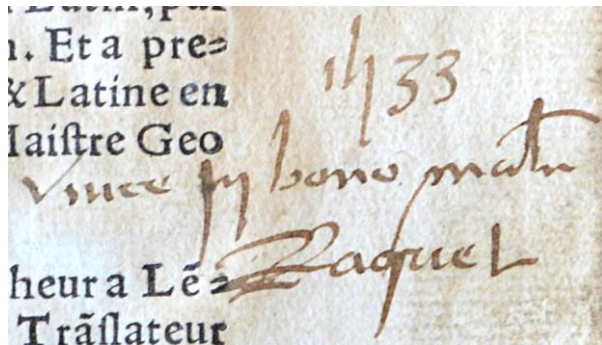 . Et a pre⸗
& Latine en
Maiſtre Geo
heur a Lẽ⸗
Trãſlateur
1533
vince jn bono malū